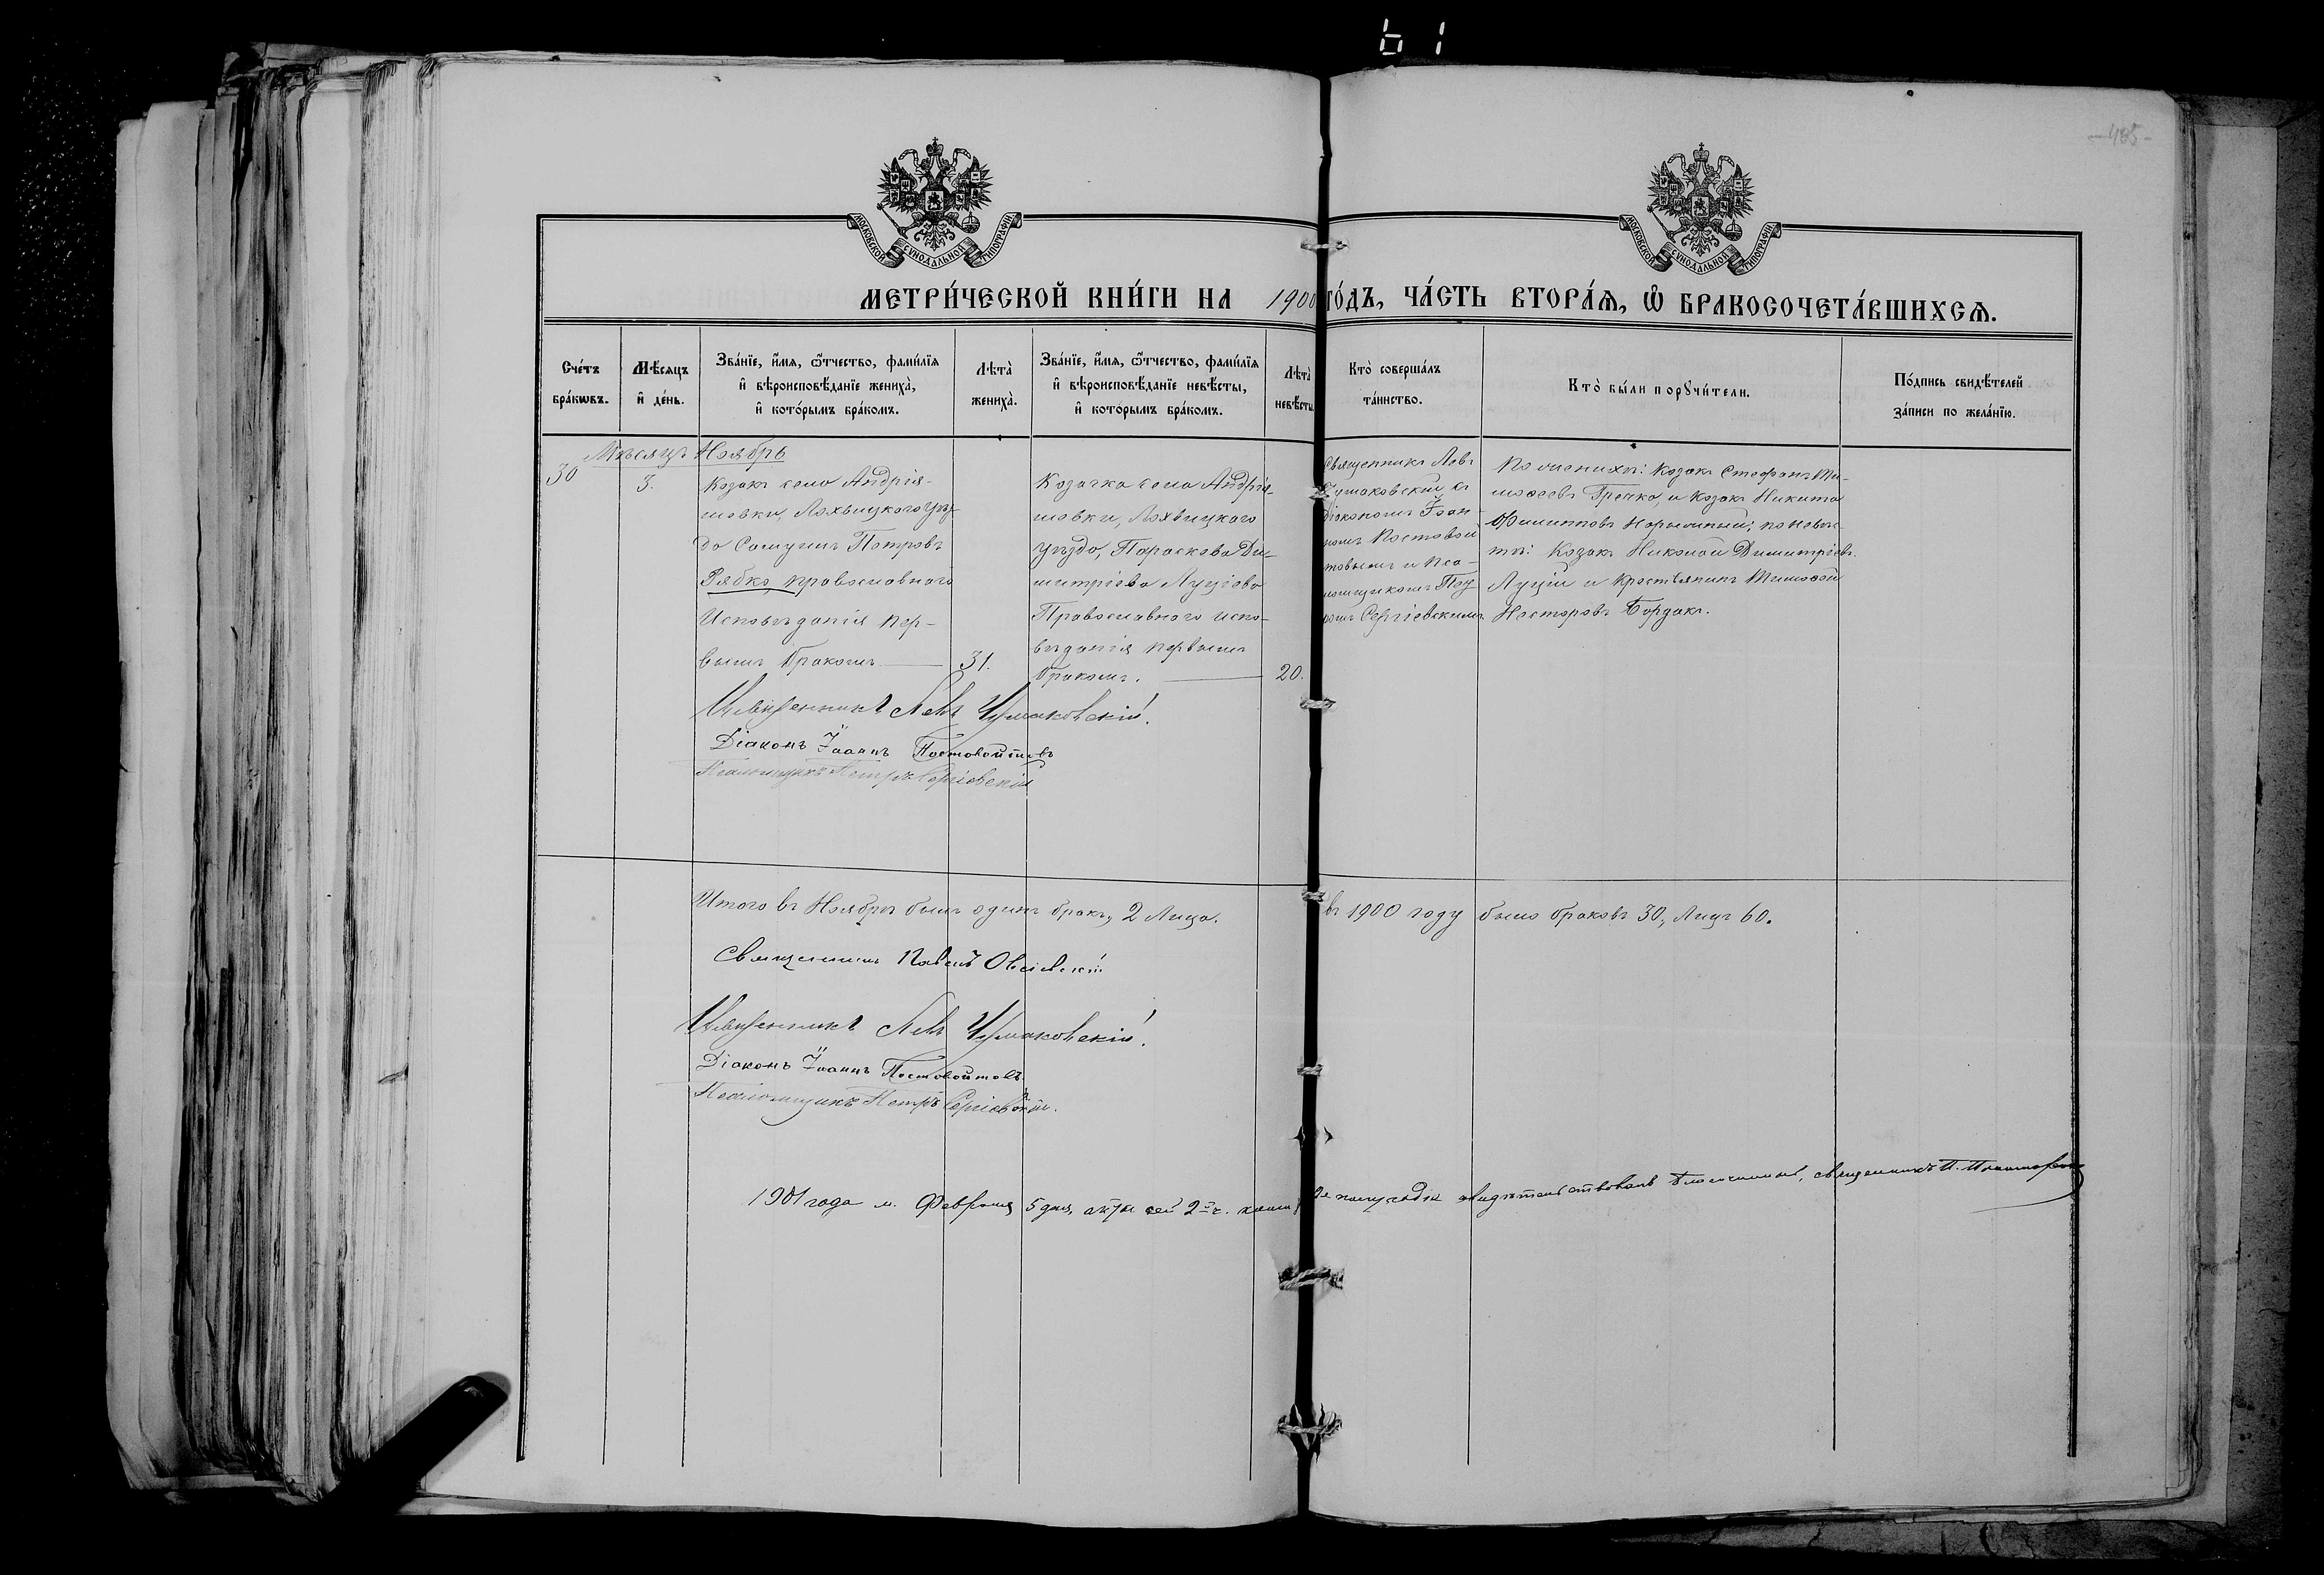 61
-485-
МОСКОВСКОЙ СѴНОДАЛЬНОЙ ТИПОГРАФІИ
МОСКОВСКОЙ СѴНОДАЛЬНОЙ ТИПОГРАФІИ
МЕТРИ́ЧЕСКОЙ КНИ́ГИ НА 1900 ГО́ДЪ, ЧА́СТЬ ВТОРА́Ѧ, Ѡ҆ БРАКОСОЧЕТА́ВШИХСѦ.
Сче́тъ
бра́кѡвъ.
Мѣ́сяцъ
и҆ де́нь.
Зва́нїе, и҆́мя, ѻ҆́тчество, фами́лїя
и҆ вѣроисповѣ́данїе жениха̀,
и҆ кото́рымъ бра́комъ.
Лѣта̀
жениха̀.
Зва́нїе, и҆́мя, ѻ҆́тчество, фами́лїя
и҆ вѣроисповѣ́данїе невѣ́сты,
и҆ кото́рымъ бра́комъ.
Лѣта̀
невѣ́сты
Кто̀ соверша́лъ
та́инство.
Кто̀ бы́ли порꙋчи́тели.
По́дпись свидѣ́телей
за́писи по жела́нїю.
Мѣсяцъ Ноябрь
30
3.
Козакъ села Андрія-
шовки, Лохвицкого уѣз-
да Самуилъ Петровъ
Рябко, православнаго
Исповѣданія пер-
вымъ бракомъ
31.
Козачка села Андрія-
шовки, Лохвицкаго
уѣзда, Параскева Ди-
митріева Луціева
Православнаго испо-
вѣданія первымъ
бракомъ.
20.
Священникъ Левъ
Чумаковскій съ
Діакономъ Іоан-
номъ Постовой
товымъ и Пса-
ломщикомъ Пет
ромъ Сергіевскимъ
По женихѣ: Козакъ Стефанъ Ти-
моѳеевъ Гречка, и Козакъ Никита
Филипповъ Нарыжный; по невѣс-
тѣ: Козакъ Николай Димитріевъ
Луцій и крестьянинъ Тимоѳей
Несторовъ Бордакъ.
Священникъ Левъ Чумаковскій.
Діаконъ Іоаннъ Постовойтовъ
Псаломщикъ Петръ Сергіевскій
Итого въ Ноябрѣ былъ одинъ бракъ, 2 Лица.
въ 1900 году было браковъ 30, Лицъ 60.
Священникъ Павелъ Овсіевскій
Священникъ Левъ Чумаковскій.
Діаконъ Іоаннъ Постовойтовъ
Псаломщикъ Петръ Сергіевскій.
1901 года м. Февраля 5 дня, сей 2й ч. свидѣтельствовалъ Благочинный, священникъ П.